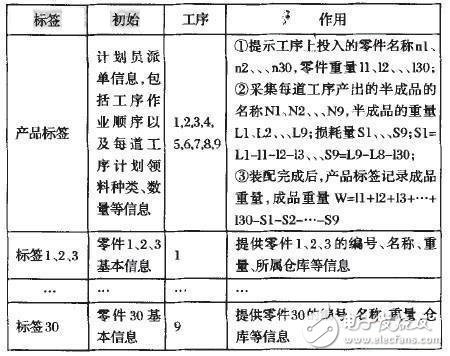 标签 初始 工序 作用
产品标签
计划员派
单信息,包
括工序作
业顺序以
及每道工
序计划领
料种类、数
量等信息
1,2,3,4,
5,6,7,8,9
①提示工序上投入的零件名称n1、
n2、、、n30,零件重量l1、l2、、、l30;
②采集每道工序产出的半成品的
名称N1、N2、、、N9,半成品的重量
L1、L2、、、L9;损耗量S1、、、S9;S1=
L1-l1-l2-l3、、、S9=L9-L8-l30;
③装配完成后,产品标签记录成品
重量,成品重量 W=l1+l2+l3+…+
l30-S1-S2-…-S9
标签1、2、3
零件1、2、3
基本信息
1
提供零件1、2、3的编号、名称、重
量、所属仓库等信息
… … … …
标签30
零件30基
本信息
9
提供零件30的编号、名称、重量、仓
库等信息
电子发烧友